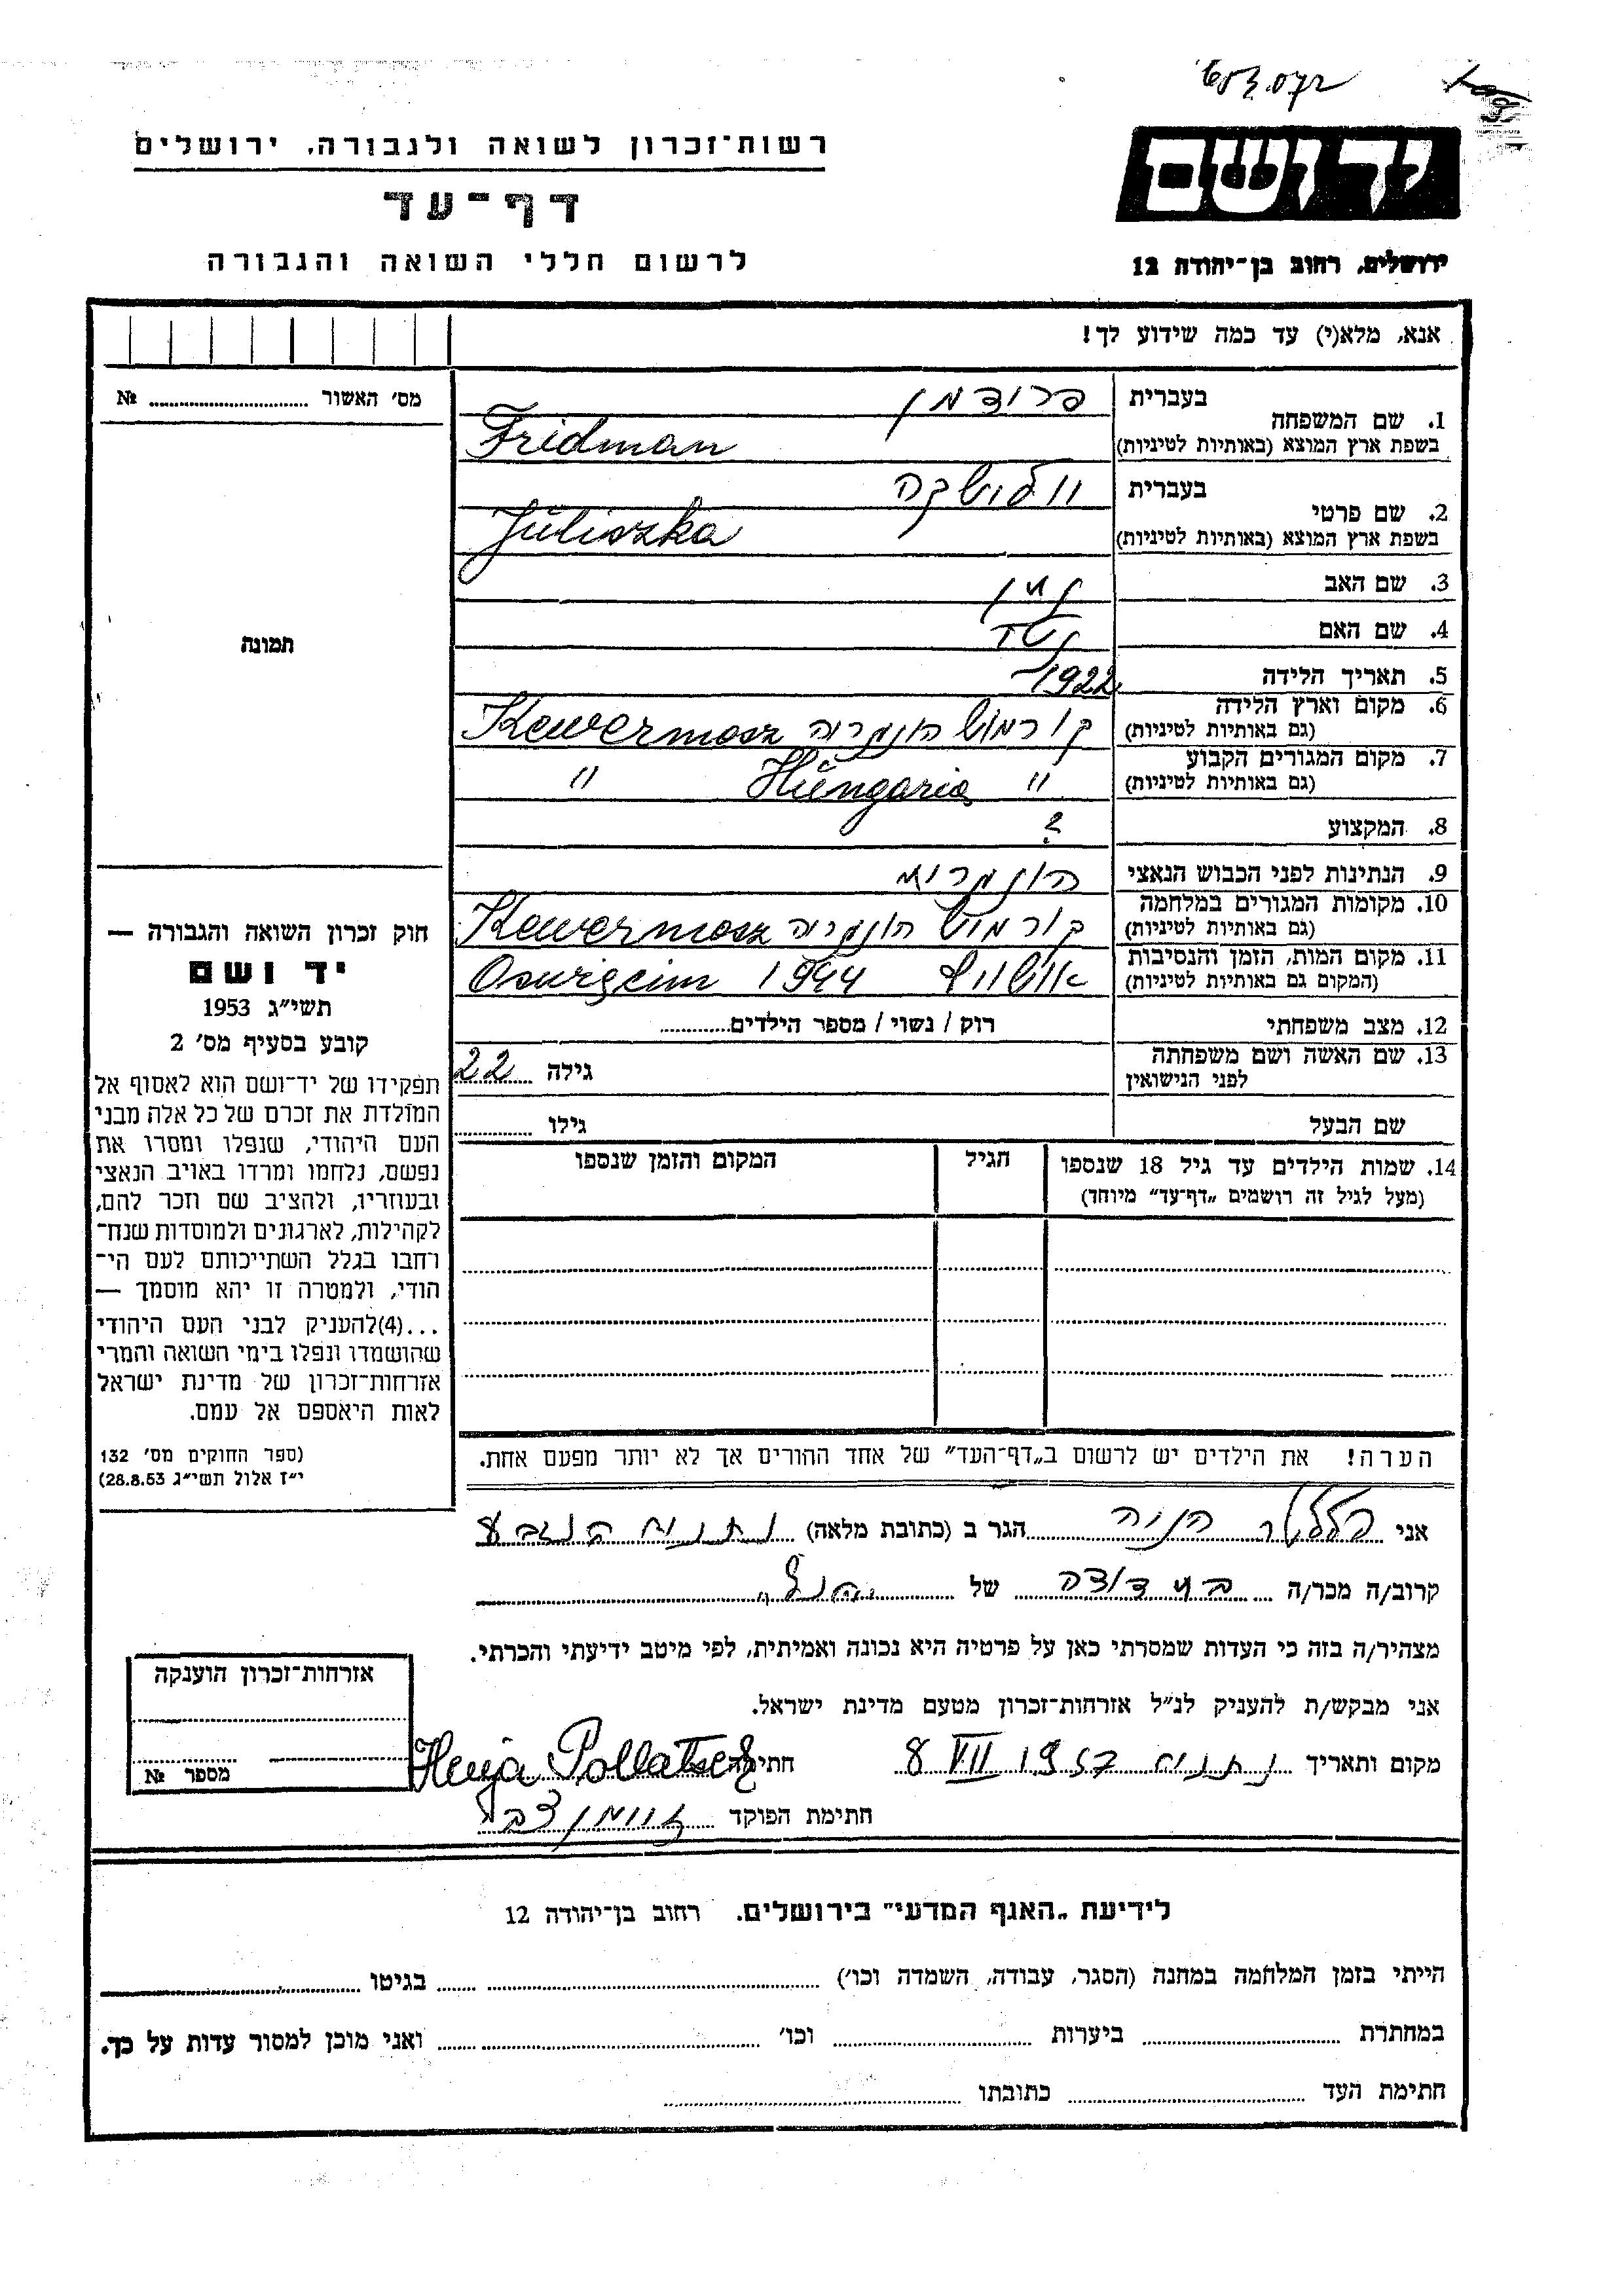 רשות־זכרון לשואה ולגבורה, ירושלים
דף־עד
לרשום חללי השואה והגבורה
יד ושם
ירושלים, רחוב בן־יהודה 12
אנא, מלא(י) עד כמה שידוע לך!
מס׳ האשור № 
תמונה
1. שם המשפחה בעברית פרידמן
בשפת ארץ המוצא (באותיות לטיניות) Fridman
2. שם פרטי בעברית
בשפת ארץ המוצא (באותיות לטיניות) Juliszka
3. שם האב
4. שם האם
5. תאריך הלידה 1922
6. מקום וארץ הלידה
(גם באותיות לטיניות) הונגריה Kewermosz
7. מקום המגורים הקבוע
(גם באותיות לטיניות) " Hungaria "
8. המקצוע ?
9. הנתינות לפני הכבוש הנאצי הונגרית
10. מקומות המגורים במלחמה
(גם באותיות לטיניות) הונגריה Kewermosz
11. מקום המות, הזמן והנסיבות
(המקום גם באותיות לטיניות) אושוויץ 1944
12. מצב משפחתי רוק / נשוי / מספר הילדים
13. שם האשה ושם משפחתה
לפני הנישואין גילה 22
שם הבעל גילו
14. שמות הילדים עד גיל 18 שנספו הגיל המקום והזמן שנספו
(מעל לגיל זה רושמים „דף־עד" מיוחד)
הערה! את הילדים יש לרשום ב„דף־העד" של אחד ההורים אך לא יותר מפעם אחת.
חוק זכרון השואה והגבורה —
יד ושם
תשי״ג 1953
קובע בסעיף מס׳ 2
תפקידו של יד־ושם הוא לאסוף אל
המולדת את זכרם של כל אלה מבני
העם היהודי, שנפלו ומסרו את
נפשם, נלחמו ומרדו באויב הנאצי
ובעוזריו, ולהציב שם וזכר להם,
לקהילות, לארגונים ולמוסדות שנח־
רחבו בגלל השתייכותם לעם הי־
הודי, ולמטרה זו יהא מוסמך —
...(4)להעניק לבני העם היהודי
שהושמדו ונפלו בימי השואה והמרי
אזרחות־זכרון של מדינת ישראל
לאות היאספם אל עמם.
(ספר החוקים מס׳ 132
י״ז אלול תשי״ג 28.8.53)
אני הניה הגר ב (כתובת מלאה) נתניה
קרוב/ה מכר/ה בת דודה של הנ״ל
מצהיר/ה בזה כי העדות שמסרתי כאן על פרטיה היא נכונה ואמיתית, לפי מיטב ידיעתי והכרתי.
אני מבקש/ת להעניק לנ״ל אזרחות־זכרון מטעם מדינת ישראל.
מקום ותאריך נתניה 8 VII 1957 חתימה Henja Pollatsek
חתימת הפוקד
אזרחות־זכרון הוענקה
מספר №
לידיעת „האגף המדעי" בירושלים. רחוב בן־יהודה 12
הייתי בזמן המלחמה במחנה (הסגר, עבודה, השמדה וכו׳) בגיטו
במחתרת ביערות וכו׳ ואני מוכן למסור עדות על כך.
חתימת העד כתובתו